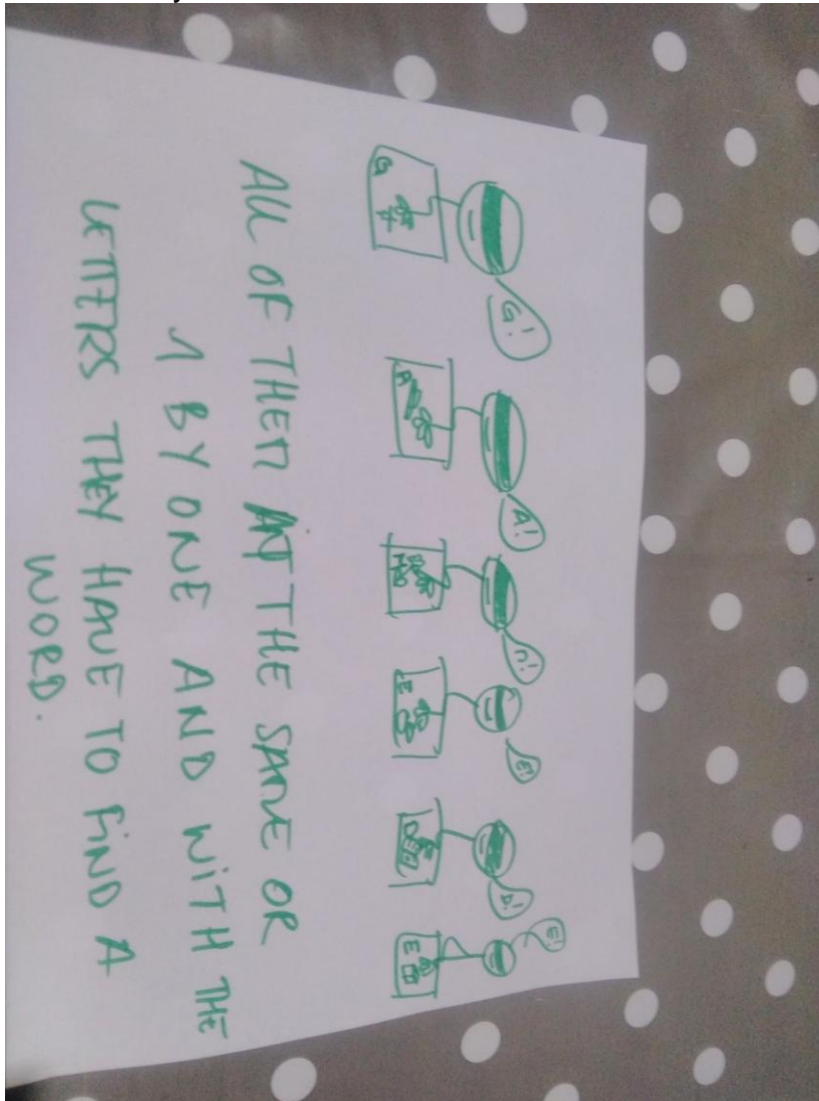 G! A! E! D! E!
G A E D E
ALL OF THEM AT THE SAME OR
1 BY ONE AND WITH THE
LETTERS THEY HAVE TO FIND A
WORD.